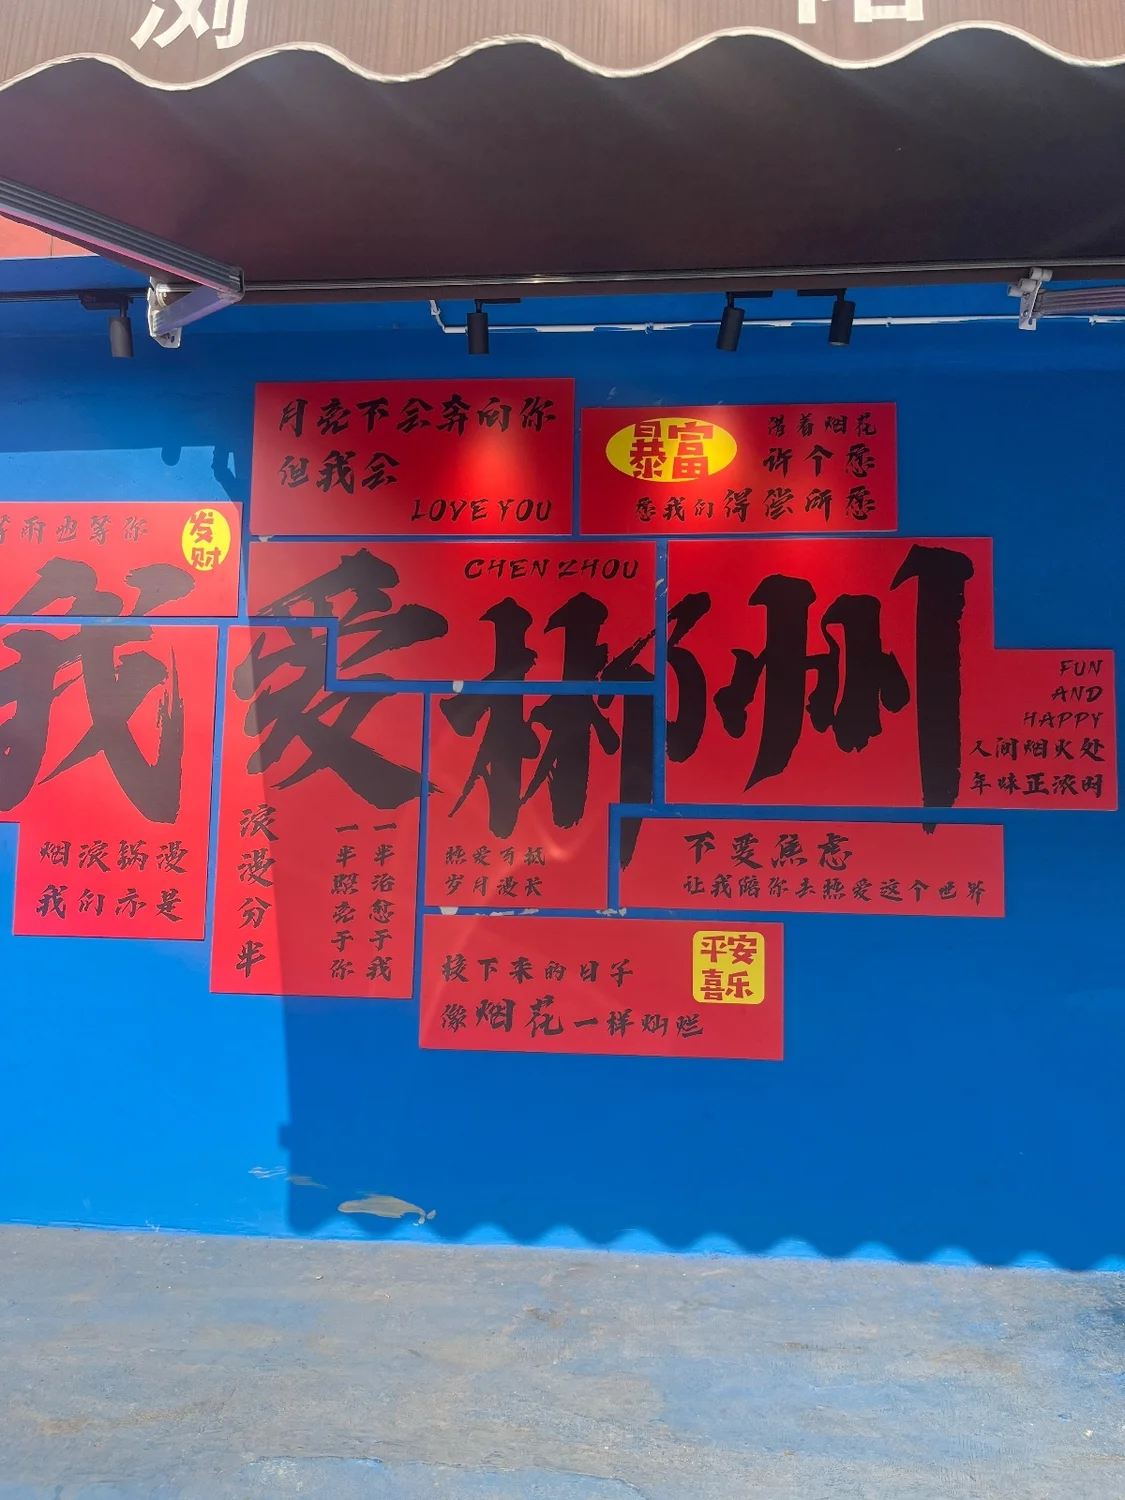 浏
阳
月亮不会奔向你
但我会
LOVE YOU
暴富
借着烟花
许个愿
愿我们得偿所愿
等雨也等你
发财
CHEN ZHOU
我爱郴州
FUN
AND
HAPPY
人间烟火处
年味正浓时
烟波锅漫
我们亦是
浪漫分半
一半照亮于你
一半治愈于我
热爱可抵
岁月漫长
不要焦虑
让我陪你去热爱这个世界
接下来的日子
像烟花一样灿烂
平安
喜乐